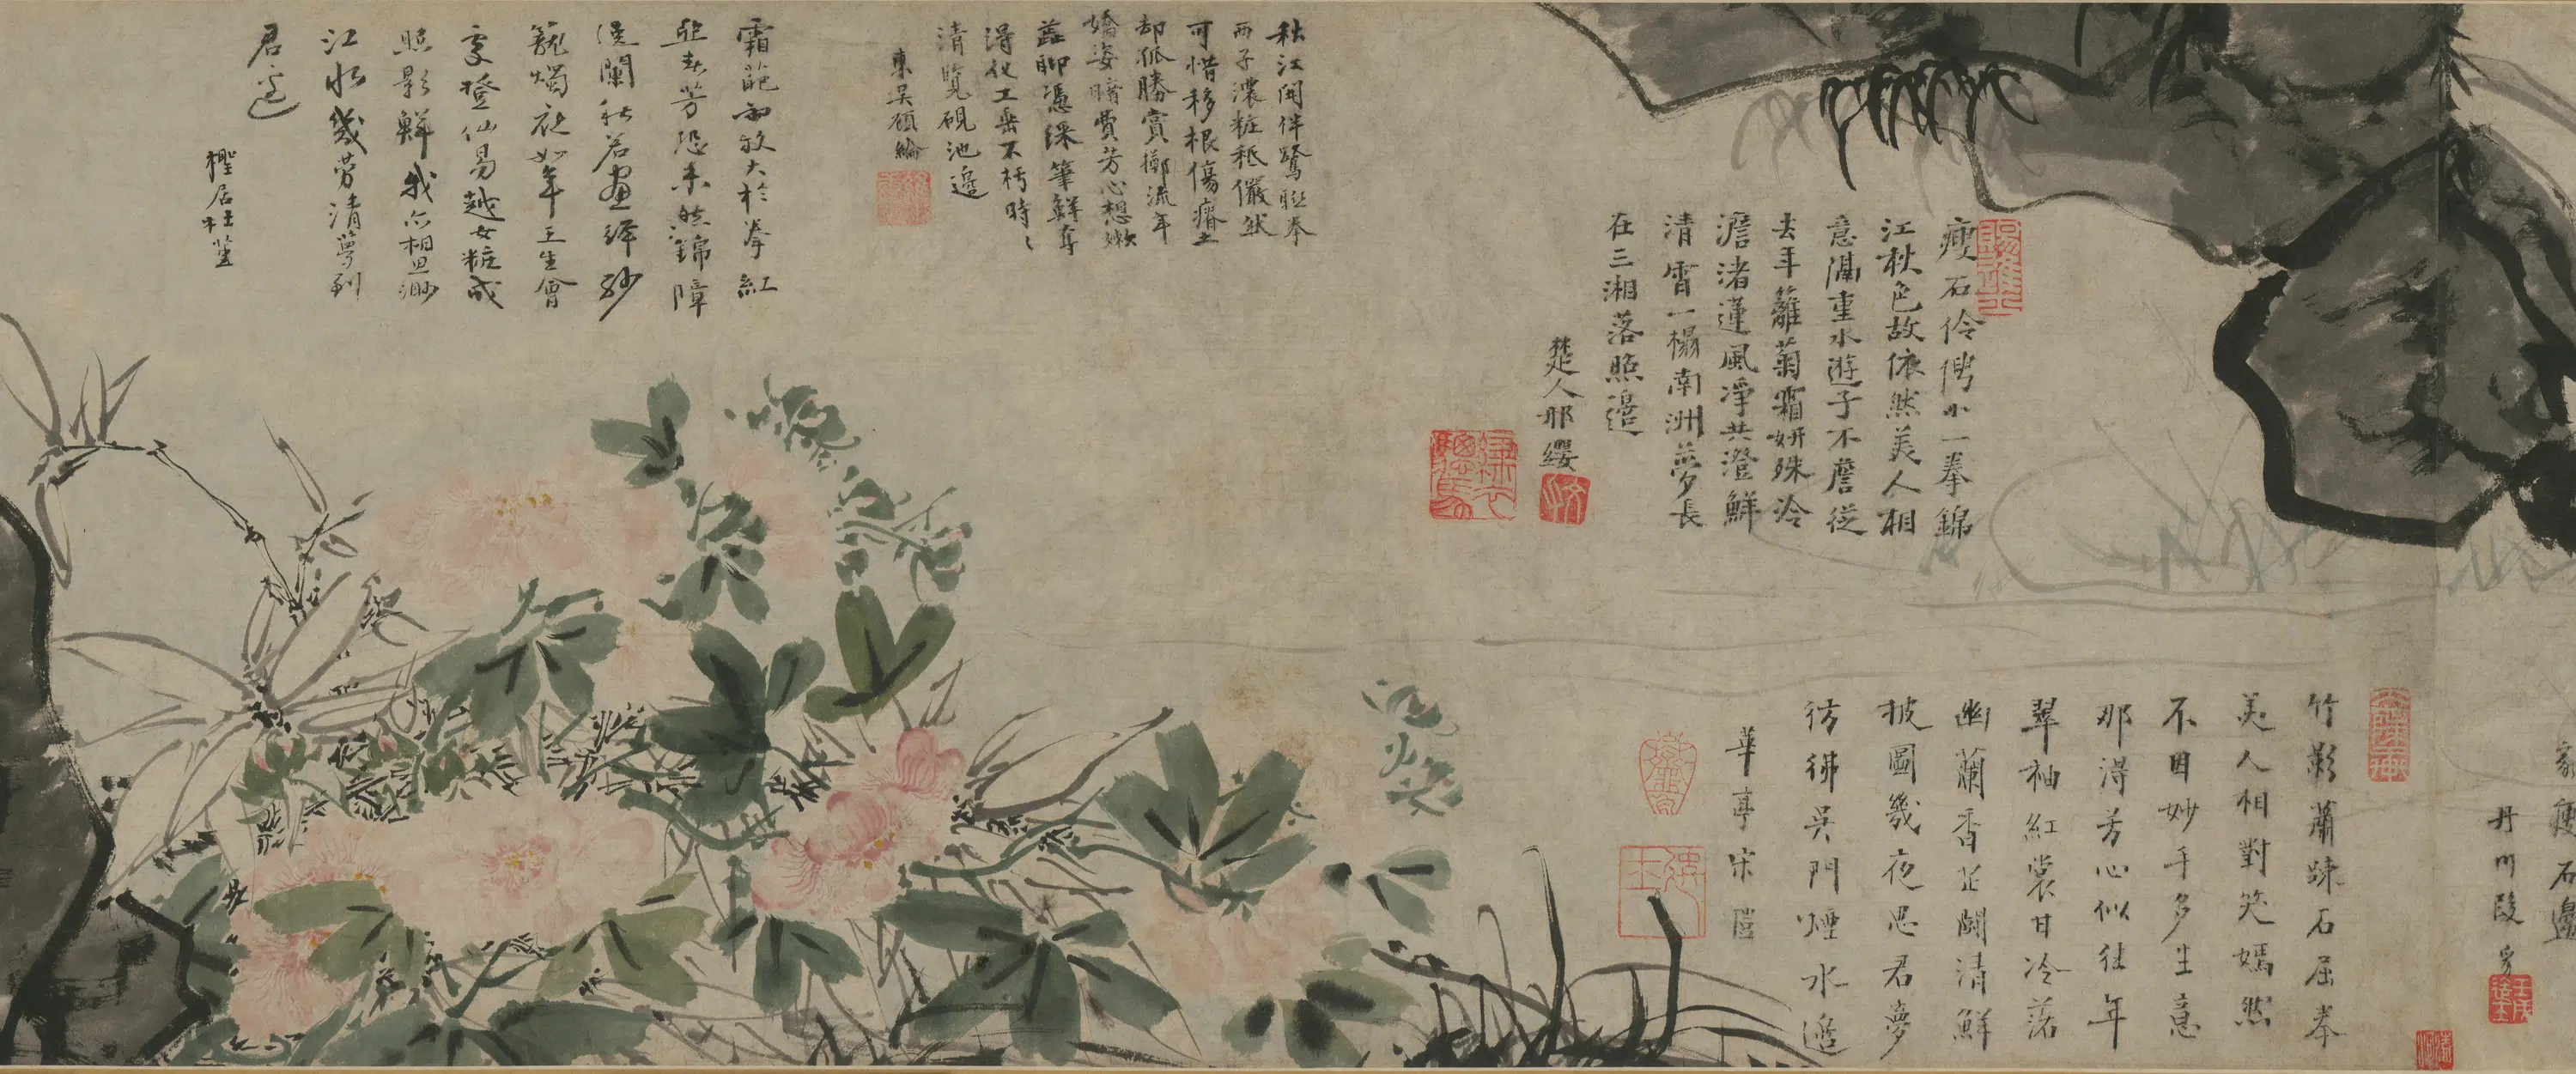 家
瘦石邊
丹川段豸
竹影蕭疎石屈拳
美人相對笑嫣然
不因妙手多生意
那得芳心似往年
翠袖紅裳甘冷落
幽蘭香芷鬭清鮮
披圖幾夜思君夢
彷彿吳門煙水邊
華亭宋愷
賜進士
瘦石伶俜小一拳錦
江秋色故依然美人相
意滿重水遊子不詹從
去年籬菊霜妍殊冷
澹渚蓮風淨共澄鮮
清宵一榻南洲夢長
在三湘落照邉
楚人邢纓
秋江開伴鷺聮拳
西子濃粧秪儼然
可惜移根傷瘠土
却孤勝賞擲流年
嬌姿暗費芳心想嫩
蕋聊憑綵筆鮮奪
得化工垂不朽時〻
清覽硯池邉
東吳顧綸
霜葩初放大於拳紅
艷春芳恐未然錦障
護闌秋若畫絳紗
籠燭夜如年玉生會
處登仙易越女粧成
照影鮮我亦相思渺
江水幾勞清夢到
君邉
檉居杜堇